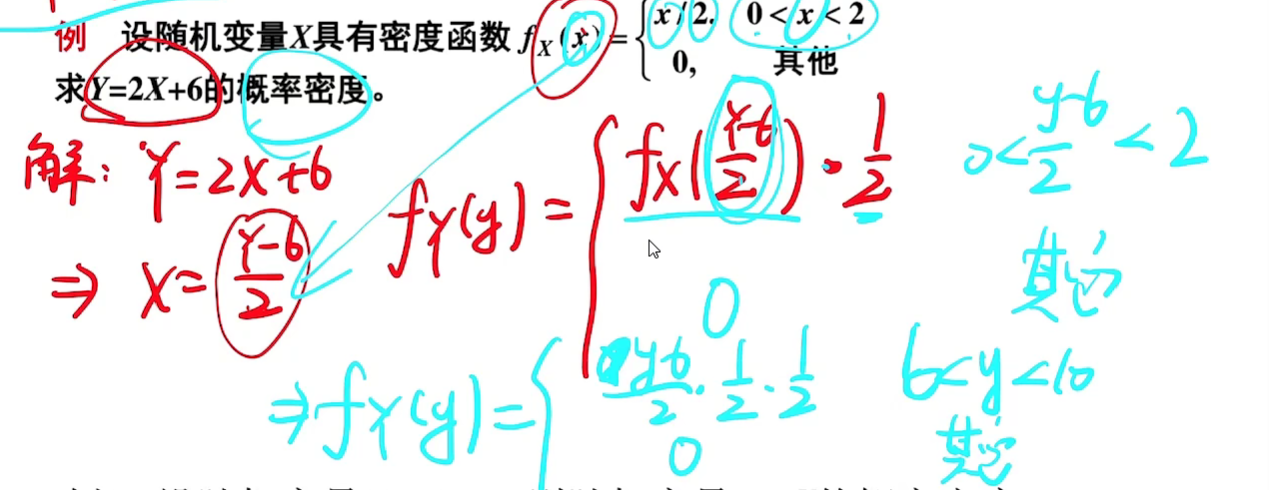 例 设随机变量X具有密度函数 f_X(x)= { x/2. 0<x<2
0, 其他
求Y=2X+6的概率密度。
解: Y=2X+6
⇒ X= (Y-6)/2
f_Y(y)= { f_X((Y-6)/2)·1/2 0<(y-6)/2<2
0 其它
⇒ f_Y(y)= { (y-6)/2·1/2·1/2 6<y<10
0 其它